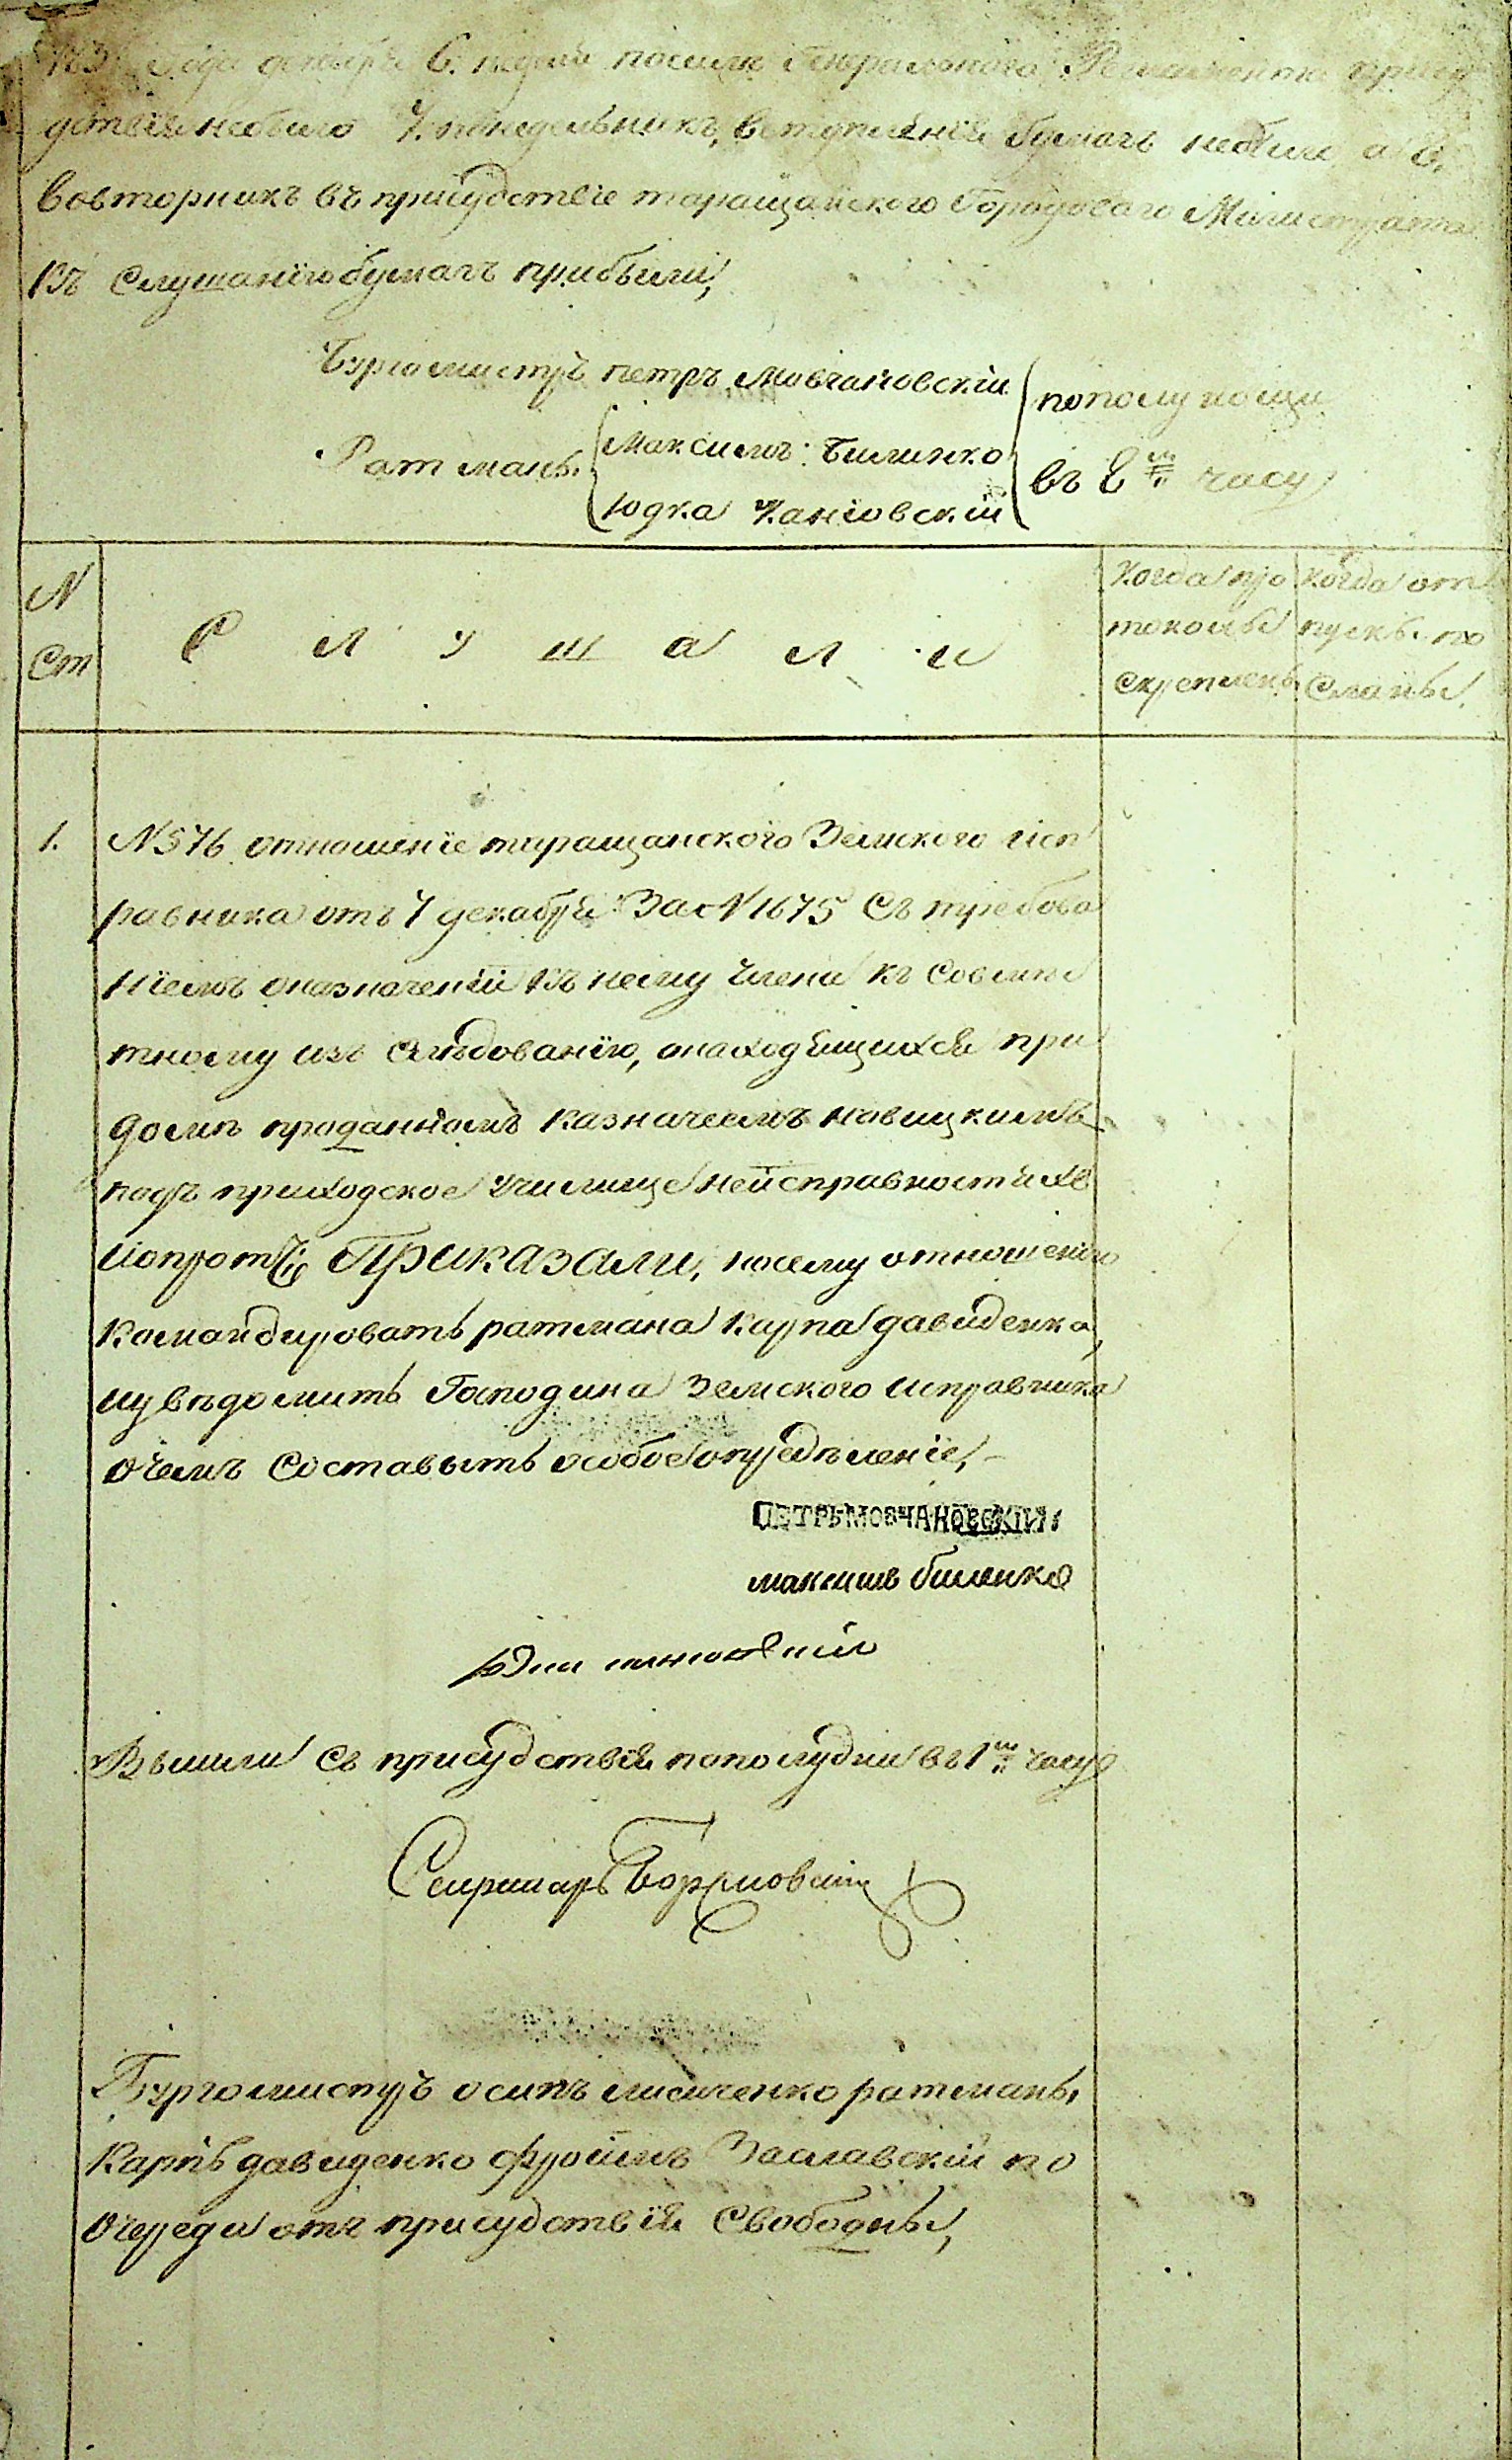 года декабря 6. недели посиле Генеральнаго Регламента прису
дствія небыло 7. понедельникъ, вступленія бумагъ небыло а 8.
вовторникъ въ присудствіе таращанского Городоваго Магистрата
къ слушанію бумагъ прибыли,
Бургомистръ петръ Мовчановскій
пополунощи
Ратманы
Максимъ Билинко
въ 8м часу
Юдка Каніовскій
N
Ст
С л у ш а л и
Когда про
токолы
скреплены
когда от
пускъ по
сланы
1. N 576 отношеніе таращанского Земского исп
равника отъ 7 декабря За N 1675 Съ требова
ніемъ оназначеніи къ нему члена къ совмѣс
тному изъ слѣдованію, онаходящихся при
домѣ проданномъ казначеемъ новицкимъ
подъ приходское училище неисправностяхъ
ипротч: Приказали, посему отношенію
командировать ратмана карпа давиденка,
иувѣдомить Господина Земского исправника
очемъ составыть особое опредѣленіе,
ПЕТРЪ МОВЧАНОВСКІЙ
максимъ билинко
Вышли съ присудствія пополудни въ 1м часу
Секретарь
Бургомистръ осипъ лисиченко ратманы,
Карпъ давиденко фроимъ Заславскій по
очереди отъ присудствія свободны,